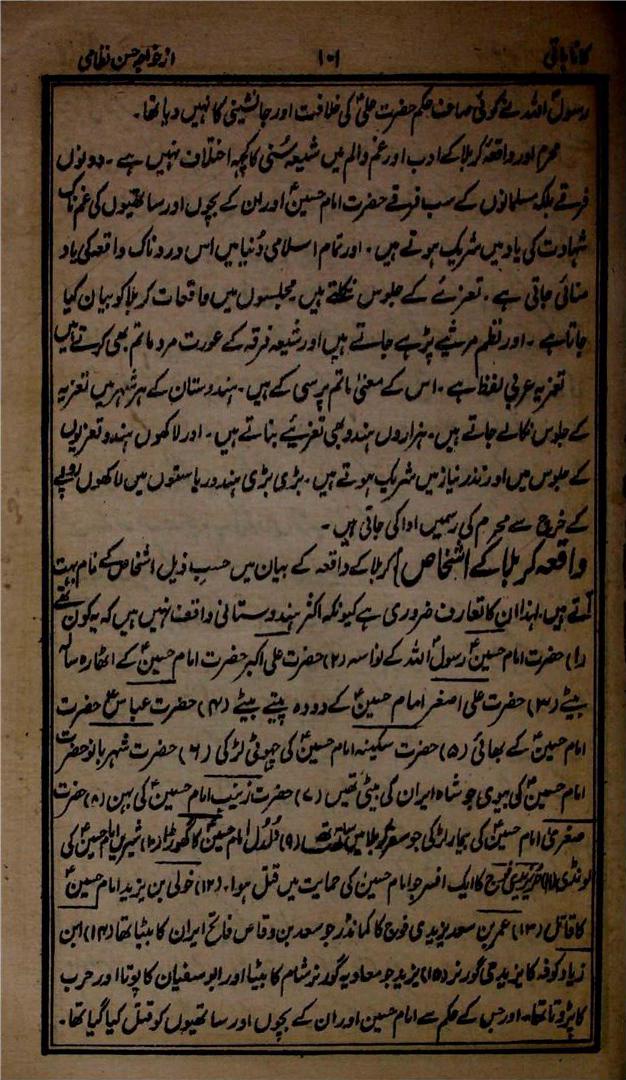 کانا باتی ۱۰۱ از خواجہ حسن نظامی
رسول اللہ نے کوئی صاف حکم حضرت علیؑ کی خلافت اور جانشینی کا نہیں دیا تھا۔
محرم اور واقعۂ کربلا کے ادب اور غم والم میں شیعہ سُنی کا کچھ اختلاف نہیں ہے۔ دونوں
فرقے بلکہ مسلمانوں کے سب فرقے حضرت امام حسینؑ اور ان کے بچوں اور ساتھیوں کی غمناک
شہادت کی یاد میں شریک ہوتے ہیں۔ اور تمام اسلامی دُنیا میں اس دردناک واقعہ کی یاد
منائی جاتی ہے۔ تعزئے کے جلوس نکلتے ہیں۔ مجلسوں میں واقعات کربلا کو بیان کیا
جاتا ہے۔ اور نظم مرثیے پڑہے جاتے ہیں اور شیعہ فرقہ کے عورت مرد ماتم بھی کرتے ہیں
تعزیہ عربی لفظ ہے۔ اس کے معنیٰ ماتم پرسی کے ہیں۔ ہندوستان کے ہر شہر میں تعزیہ
کے جلوس نکالے جاتے ہیں۔ ہزاروں ہندو بھی تعزیئے بناتے ہیں۔ اور لاکھوں ہندو تعزیوں
کے جلوس میں اور نذر نیاز میں شریک ہوتے ہیں۔ بڑی بڑی ہندو ریاستوں میں لاکھوں روپے
کے خرچ سے محرم کی رسمیں ادا کی جاتی ہیں۔
واقعہ کربلا کے اشخاص} کربلا کے واقعہ کے بیان میں حسب ذیل اشخاص کے نام بہت
آتے ہیں، لہذا ان کا تعارف ضروری ہے کیونکہ اکثر ہندوستانی واقف نہیں ہیں کہ یہ کون تھے
(۱) حضرت امام حسینؑ رسولؐ اللہ کے نواسہ (۲) حضرت علی اکبر حضرت امام حسینؑ کے اٹھارہ سالہ
بیٹے (۳) حضرت علی اصغر امام حسینؑ کے دودہ پیتے بیٹے (۴) حضرت عباسؑ حضرت
امام حسینؑ کے بھائی (۵) حضرت سکینہ امام حسینؑ کی چھوٹی لڑکی (۶) حضرت شہر بانو حضرت
امام حسینؑ کی بیوی جو شاہ ایران کی بیٹی تھیں (۷) حضرت زینب امام حسینؑ کی بہن (۸) حضرت
صغریٰ امام حسینؑ کی بیمار لڑکی جو سفر کربلا میں ساتھ نہ تھی (۹) دُلدُل امام حسینؑ کا گھوڑا (۱۰) شیریں امام حسینؑ کی
لونڈی (۱۱) حُر یزیدی فوج کا ایک افسر جو امام حسینؑ کی حمایت میں قتل ہوا۔ (۱۲) خولی بن یزید امام حسینؑ
کا قاتل (۱۳) عمر بن سعد یزیدی فوج کا کمانڈر جو سعد بن وقاص فاتح ایران کا بیٹا تھا (۱۴) ابن
زیاد کوفہ کا یزیدی گورنر (۱۵) یزید جو معاویہ گورنر شام کا بیٹا اور ابوسفیان کا پوتا اور حرب
کا پڑوتا تھا۔ اور جس کے حکم سے امام حسین اور ان کے بچوں اور ساتھیوں کو قتل کیا گیا تھا۔